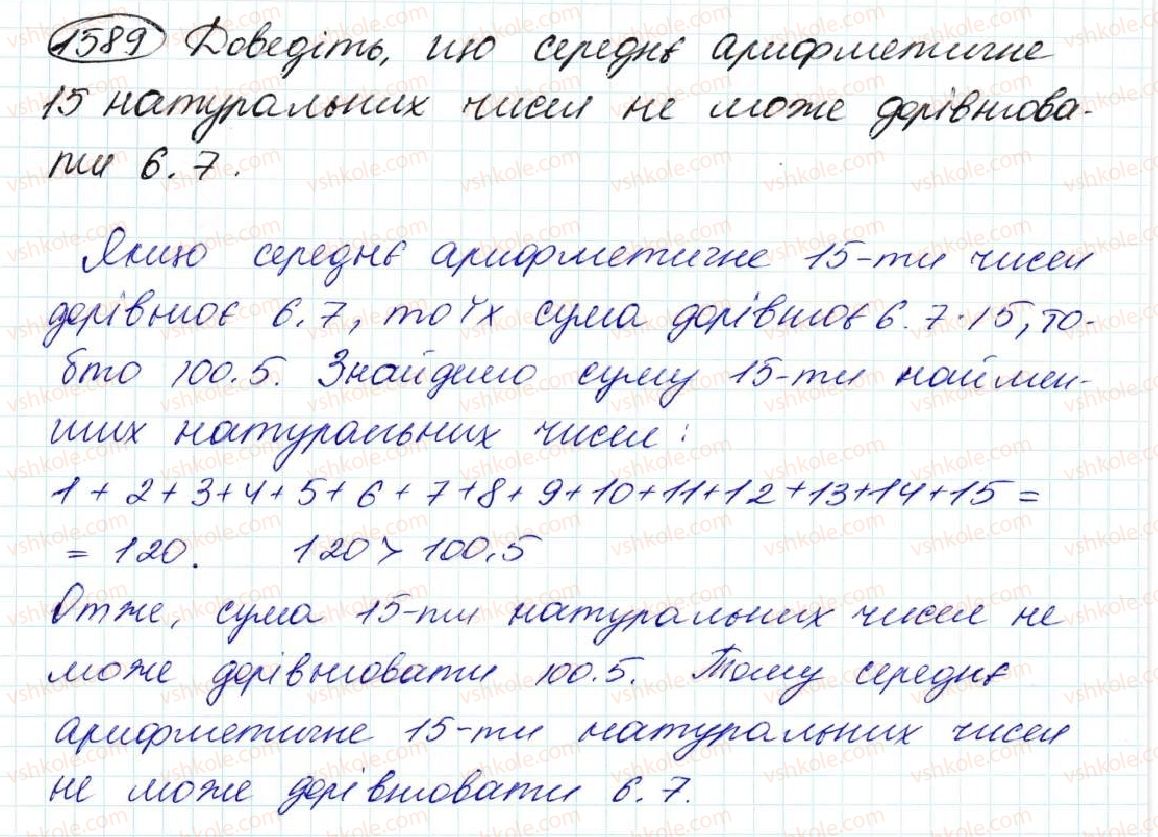 1589 Доведіть, що середнє арифметичне
15 натуральних чисел не може дорівнюва-
ти 6.7.
Якщо середнє арифметичне 15-ти чисел
дорівнює 6.7, то їх сума дорівнює 6.7·15, то-
бто 100.5. Знайдемо суму 15-ти наймен-
ших натуральних чисел:
1+2+3+4+5+6+7+8+9+10+11+12+13+14+15=
= 120. 120 > 100.5
Отже, сума 15-ти натуральних чисел не
може дорівнювати 100.5. Тому середнє
арифметичне 15-ти натуральних чисел
не може дорівнювати 6.7.